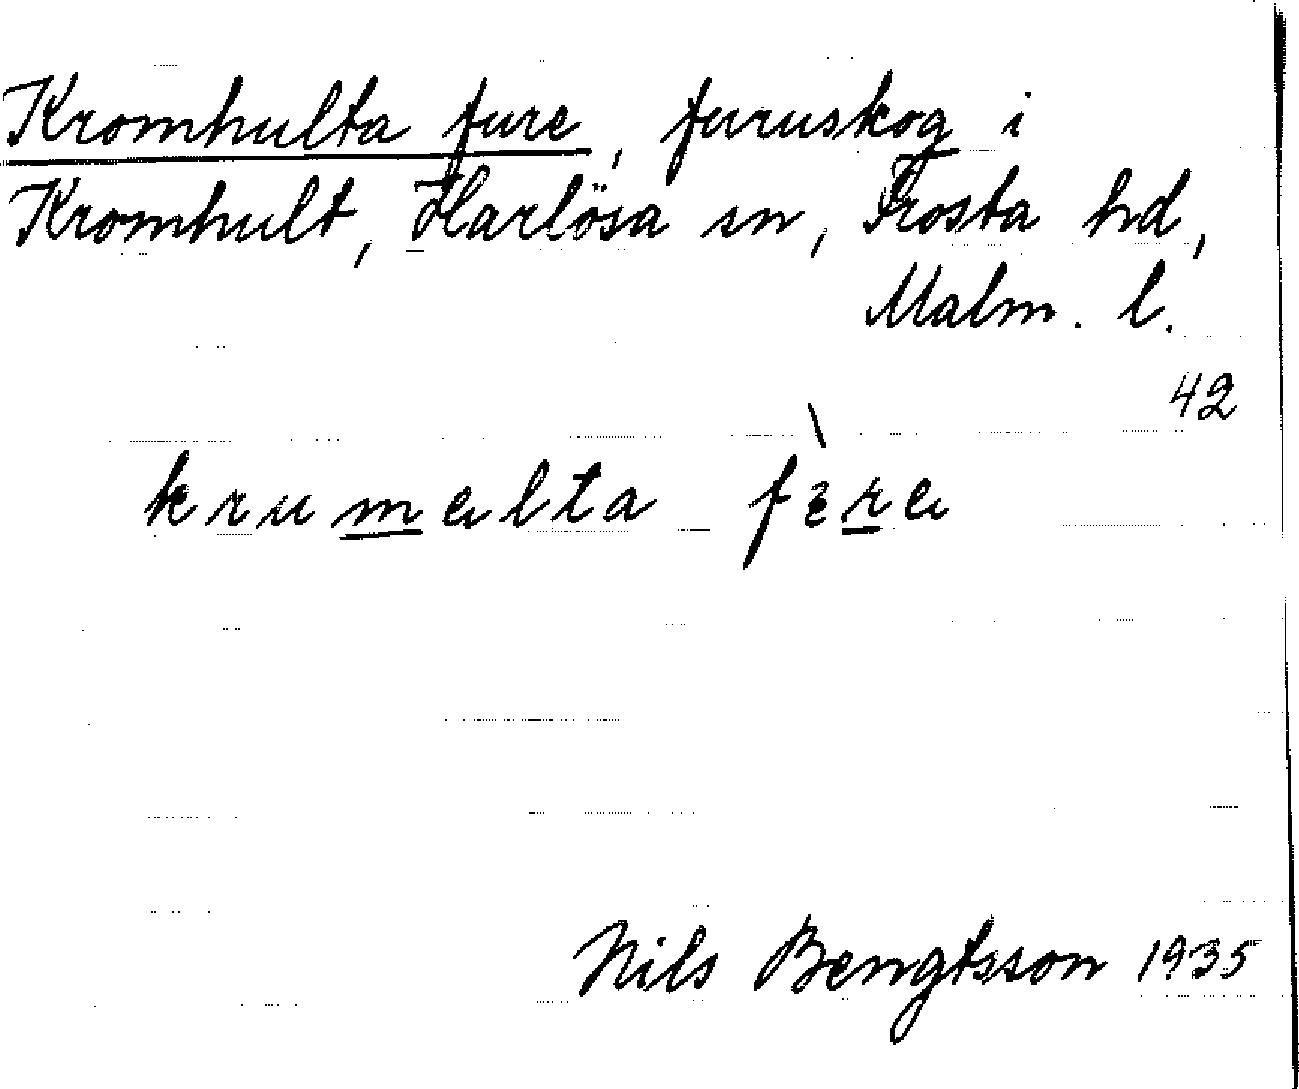 Kromhulta fure, furuskog i
Kromhult, Harlösa sn, Frosta hd,
Malm. l.
42
krumalta
Nils Bengtsson 1935